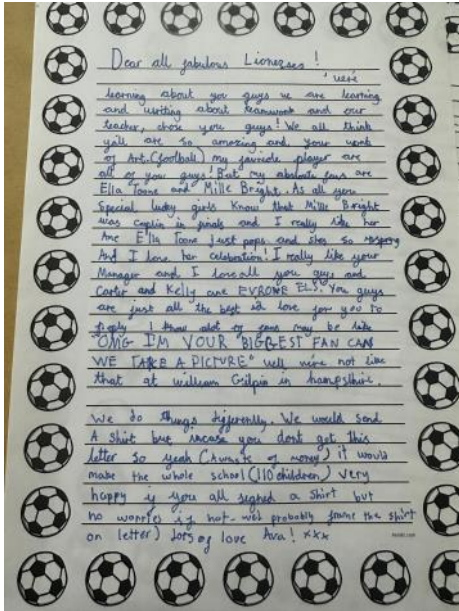 Dear all fabulous Lionesses!
we're
learning about you guys we are learning
and writing about teamwork and our
teacher, chose you guys! We all think
y'all are so amazing and your work
of Art. (football) my favreole player are
all of you guys! But my absolute favs are
Ella Toone and Mille Bright. As all you
Special lucky girls know that Mille Bright
was captin in finals and I really like her
And Ella Toone just pops and shes so
And I love her celabration! I really like your
Manager and I love all you guys and
Carter and Kelly and EVROWE ELS. You guys
are just all the best id love for you to
reply I know alot of fans may be like
"OMG I'M YOUR BIGGEST FAN CAN
WE TAKE A PICTURE" well we're not like
that at william Gilpin in hampshire.
We do things differently. We would send
A shirt but incase you dont got this
letter so yeah (waste of money) it would
make the whole school (110 children) very
happy if you all sighed a shirt but
no worries if not - we'd probably frame the shirt
on letter) lots of love Ava! xxx